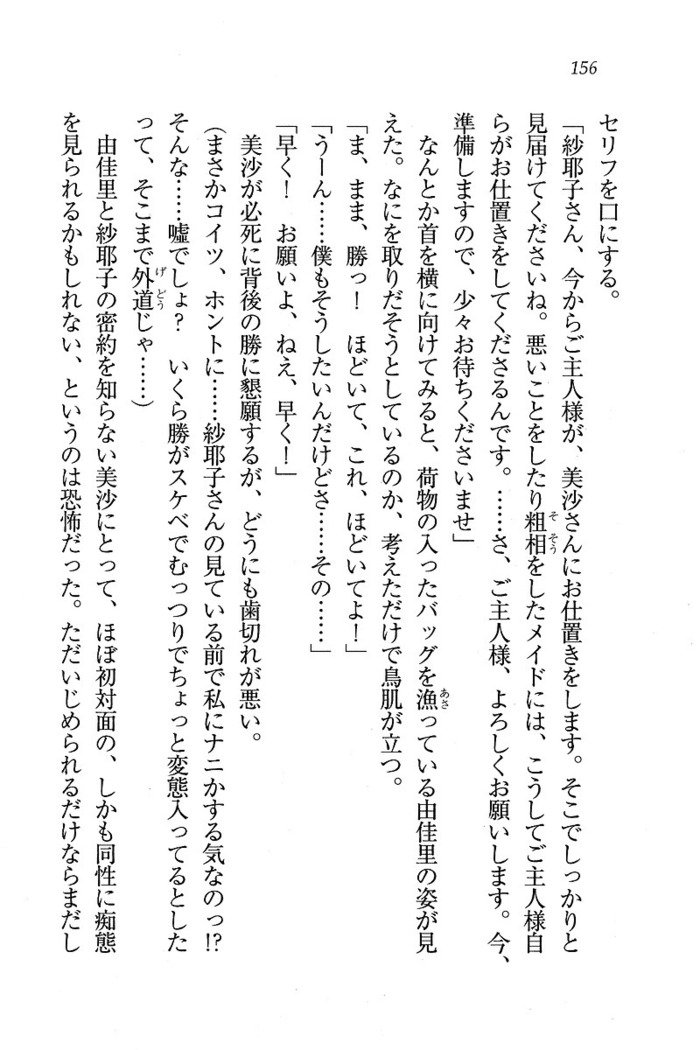 156
セリフを口にする。
「紗耶子さん、今からご主人様が、美沙さんにお仕置きをします。そこでしっかりと
見届けてくださいね。悪いことをしたり粗相をしたメイドには、こうしてご主人様自
らがお仕置きをしてくださるんです。……さ、ご主人様、よろしくお願いします。今、
準備しますので、少々お待ちくださいませ」
なんとか首を横に向けてみると、荷物の入ったバッグを漁っている由佳里の姿が見
えた。なにを取りだそうとしているのか、考えただけで鳥肌が立つ。
「ま、まま、勝っ!　ほどいて、これ、ほどいてよ!」
「うーん……僕もそうしたいんだけどさ……その……」
「早く!　お願いよ、ねえ、早く!」
美沙が必死に背後の勝に懇願するが、どうにも歯切れが悪い。
(まさかコイツ、ホントに……紗耶子さんの見ている前で私にナニかする気なのっ!?
そんな……嘘でしょ?　いくら勝がスケベでむっつりでちょっと変態入ってるとした
って、そこまで外道じゃ……)
由佳里と紗耶子の密約を知らない美沙にとって、ほぼ初対面の、しかも同性に痴態
を見られるかもしれない、というのは恐怖だった。ただいじめられるだけならまだし